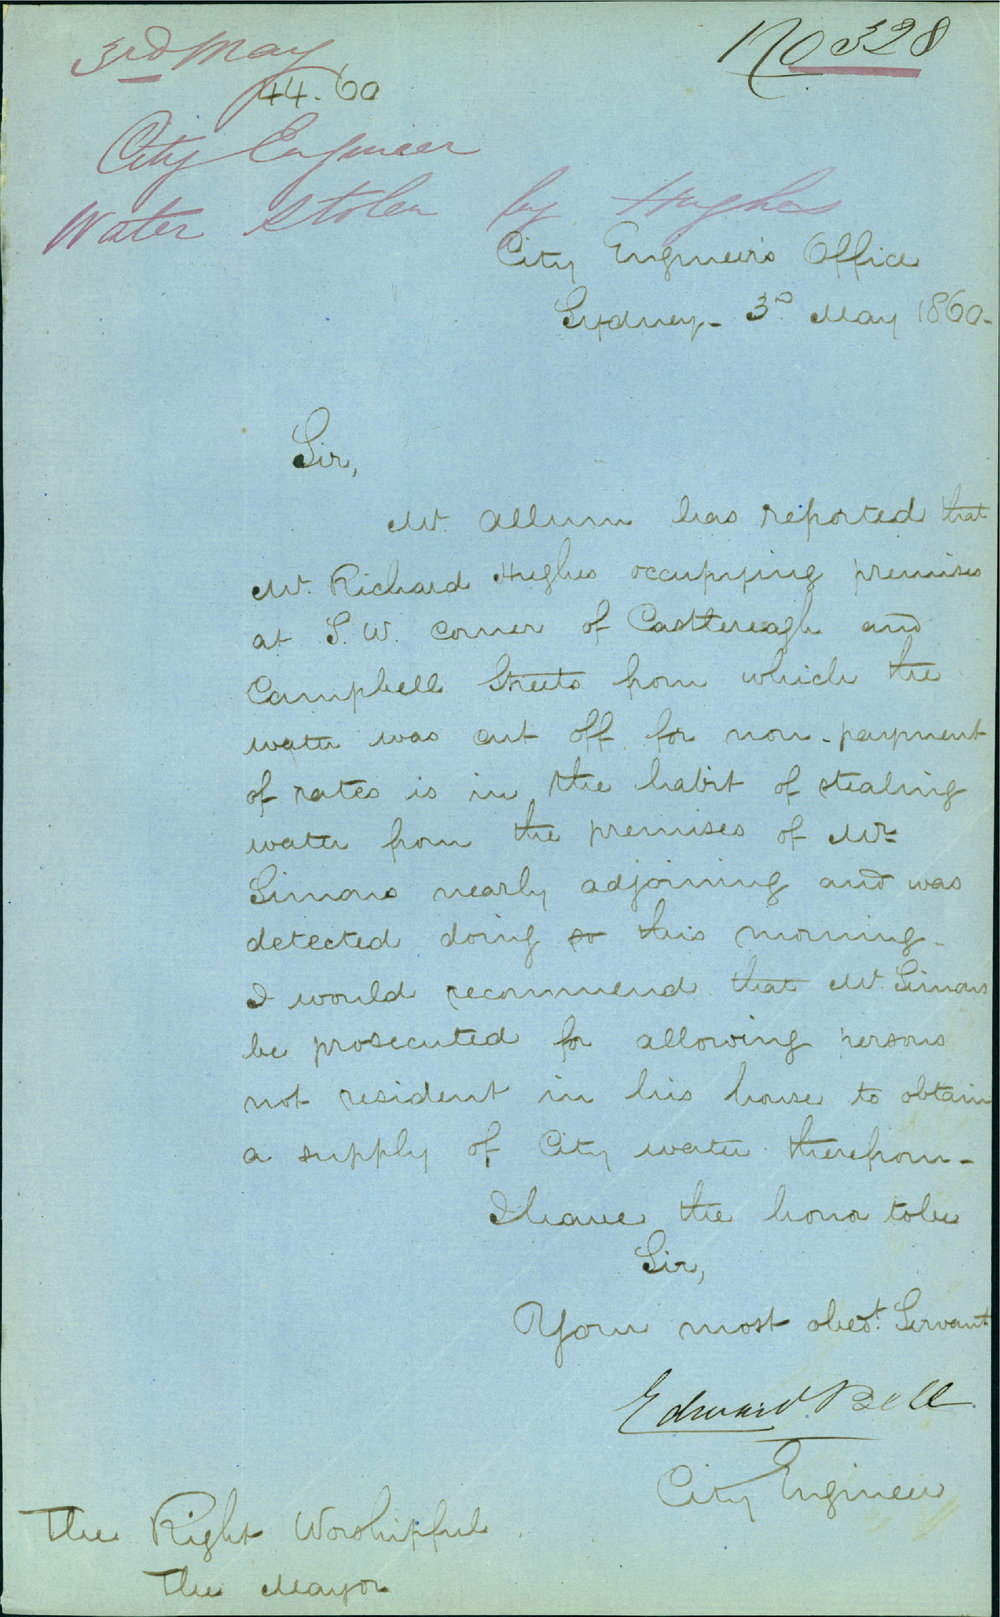 3rd May
No 328
44.60
City Engineer
Water Stolen by Hughes
City Engineer's Office
Sydney - 3d May 1860 -
Sir,
Mr. Allum has reported that
Mr. Richard Hughes occupying premises
at S. W. corner of Castlereagh and
Campbell Streets from which the
water was cut off for non-payment
of rates is in the habit of stealing
water from the premises of Mr
Simons nearly adjoining and was
detected doing so this morning -
I would recommend that Mr Simons
be prosecuted for allowing persons
not resident in his house to obtain
a supply of City water therefrom -
I have the honor to be
Sir,
Your most obedt. Servant
Edward Bell
City Engineer
The Right Worshipful
The Mayor